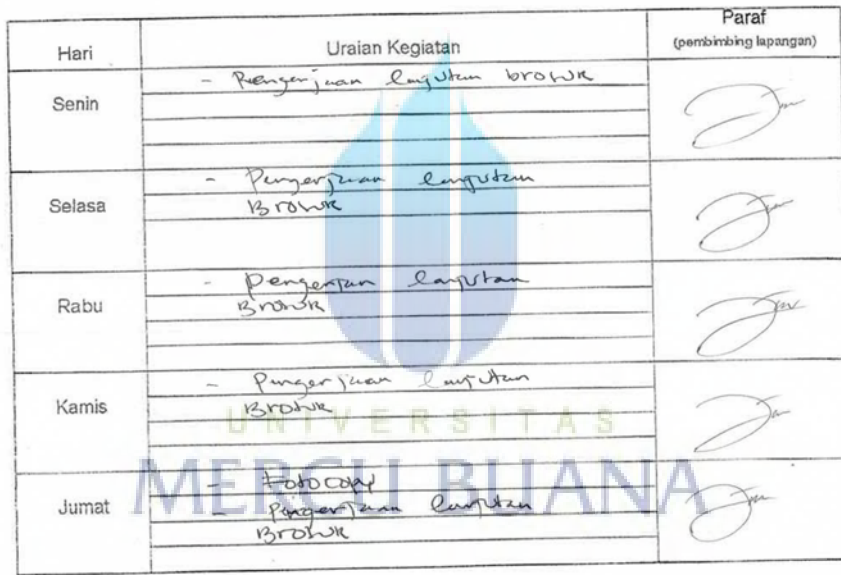 Hari Uraian Kegiatan Paraf
(pembimbing lapangan)
Senin
- Pengerjaan lanjutan browk
Selasa
- Pengerjaan lanjutan
Browk
Rabu
- Pengerjaan lanjutan
Browk
Kamis
- Pengerjaan lanjutan
Browk
UNIVERSITAS
MERCU BUANA
Jumat
- Fotocopy
- Pengerjaan lanjutan
Browk